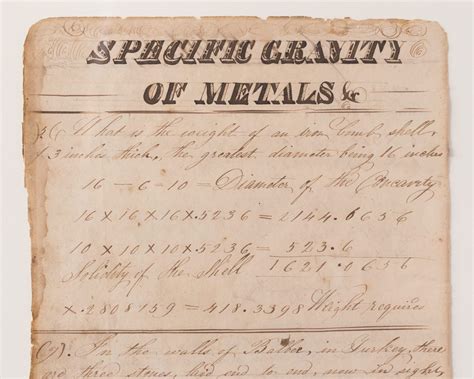 SPECIFIC GRAVITY
OF METALS &c
What is the weight of an iron bomb shell,
3 inches thick, the greatest diameter being 16 inches
16 - 6 = 10 = Diameter of the Concavity
16 x 16 x 16 x .5236 = 2144.6656
10 x 10 x 10 x .5236 = 523.6
Solidity of the Shell 1621.0656
x .2808159 = 418.3398 Weight required
(9). In the walls of Balbec, in Turkey, there
are three stones, laid end to end, now in sight,